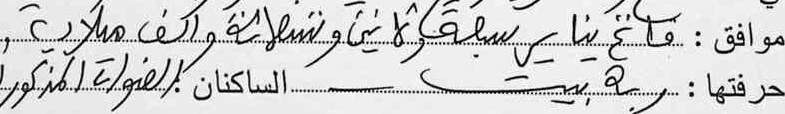 موافق : فاتح يناير سبعة وثلاثين وتسعمائة وألف ميلادية ,
حرفتها : ربة بيت الساكنان : بالعنوان المذكور